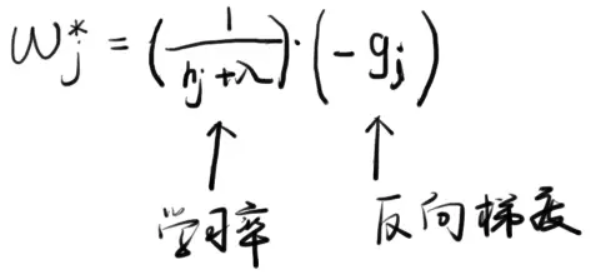 w_j^* = (\frac{1}{h_j+λ})·(-g_j)
学习率 反向梯度